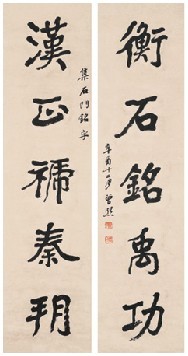 衡石銘禹功
辛酉十二月 曾熙
集石門銘字
漢正禠秦朔